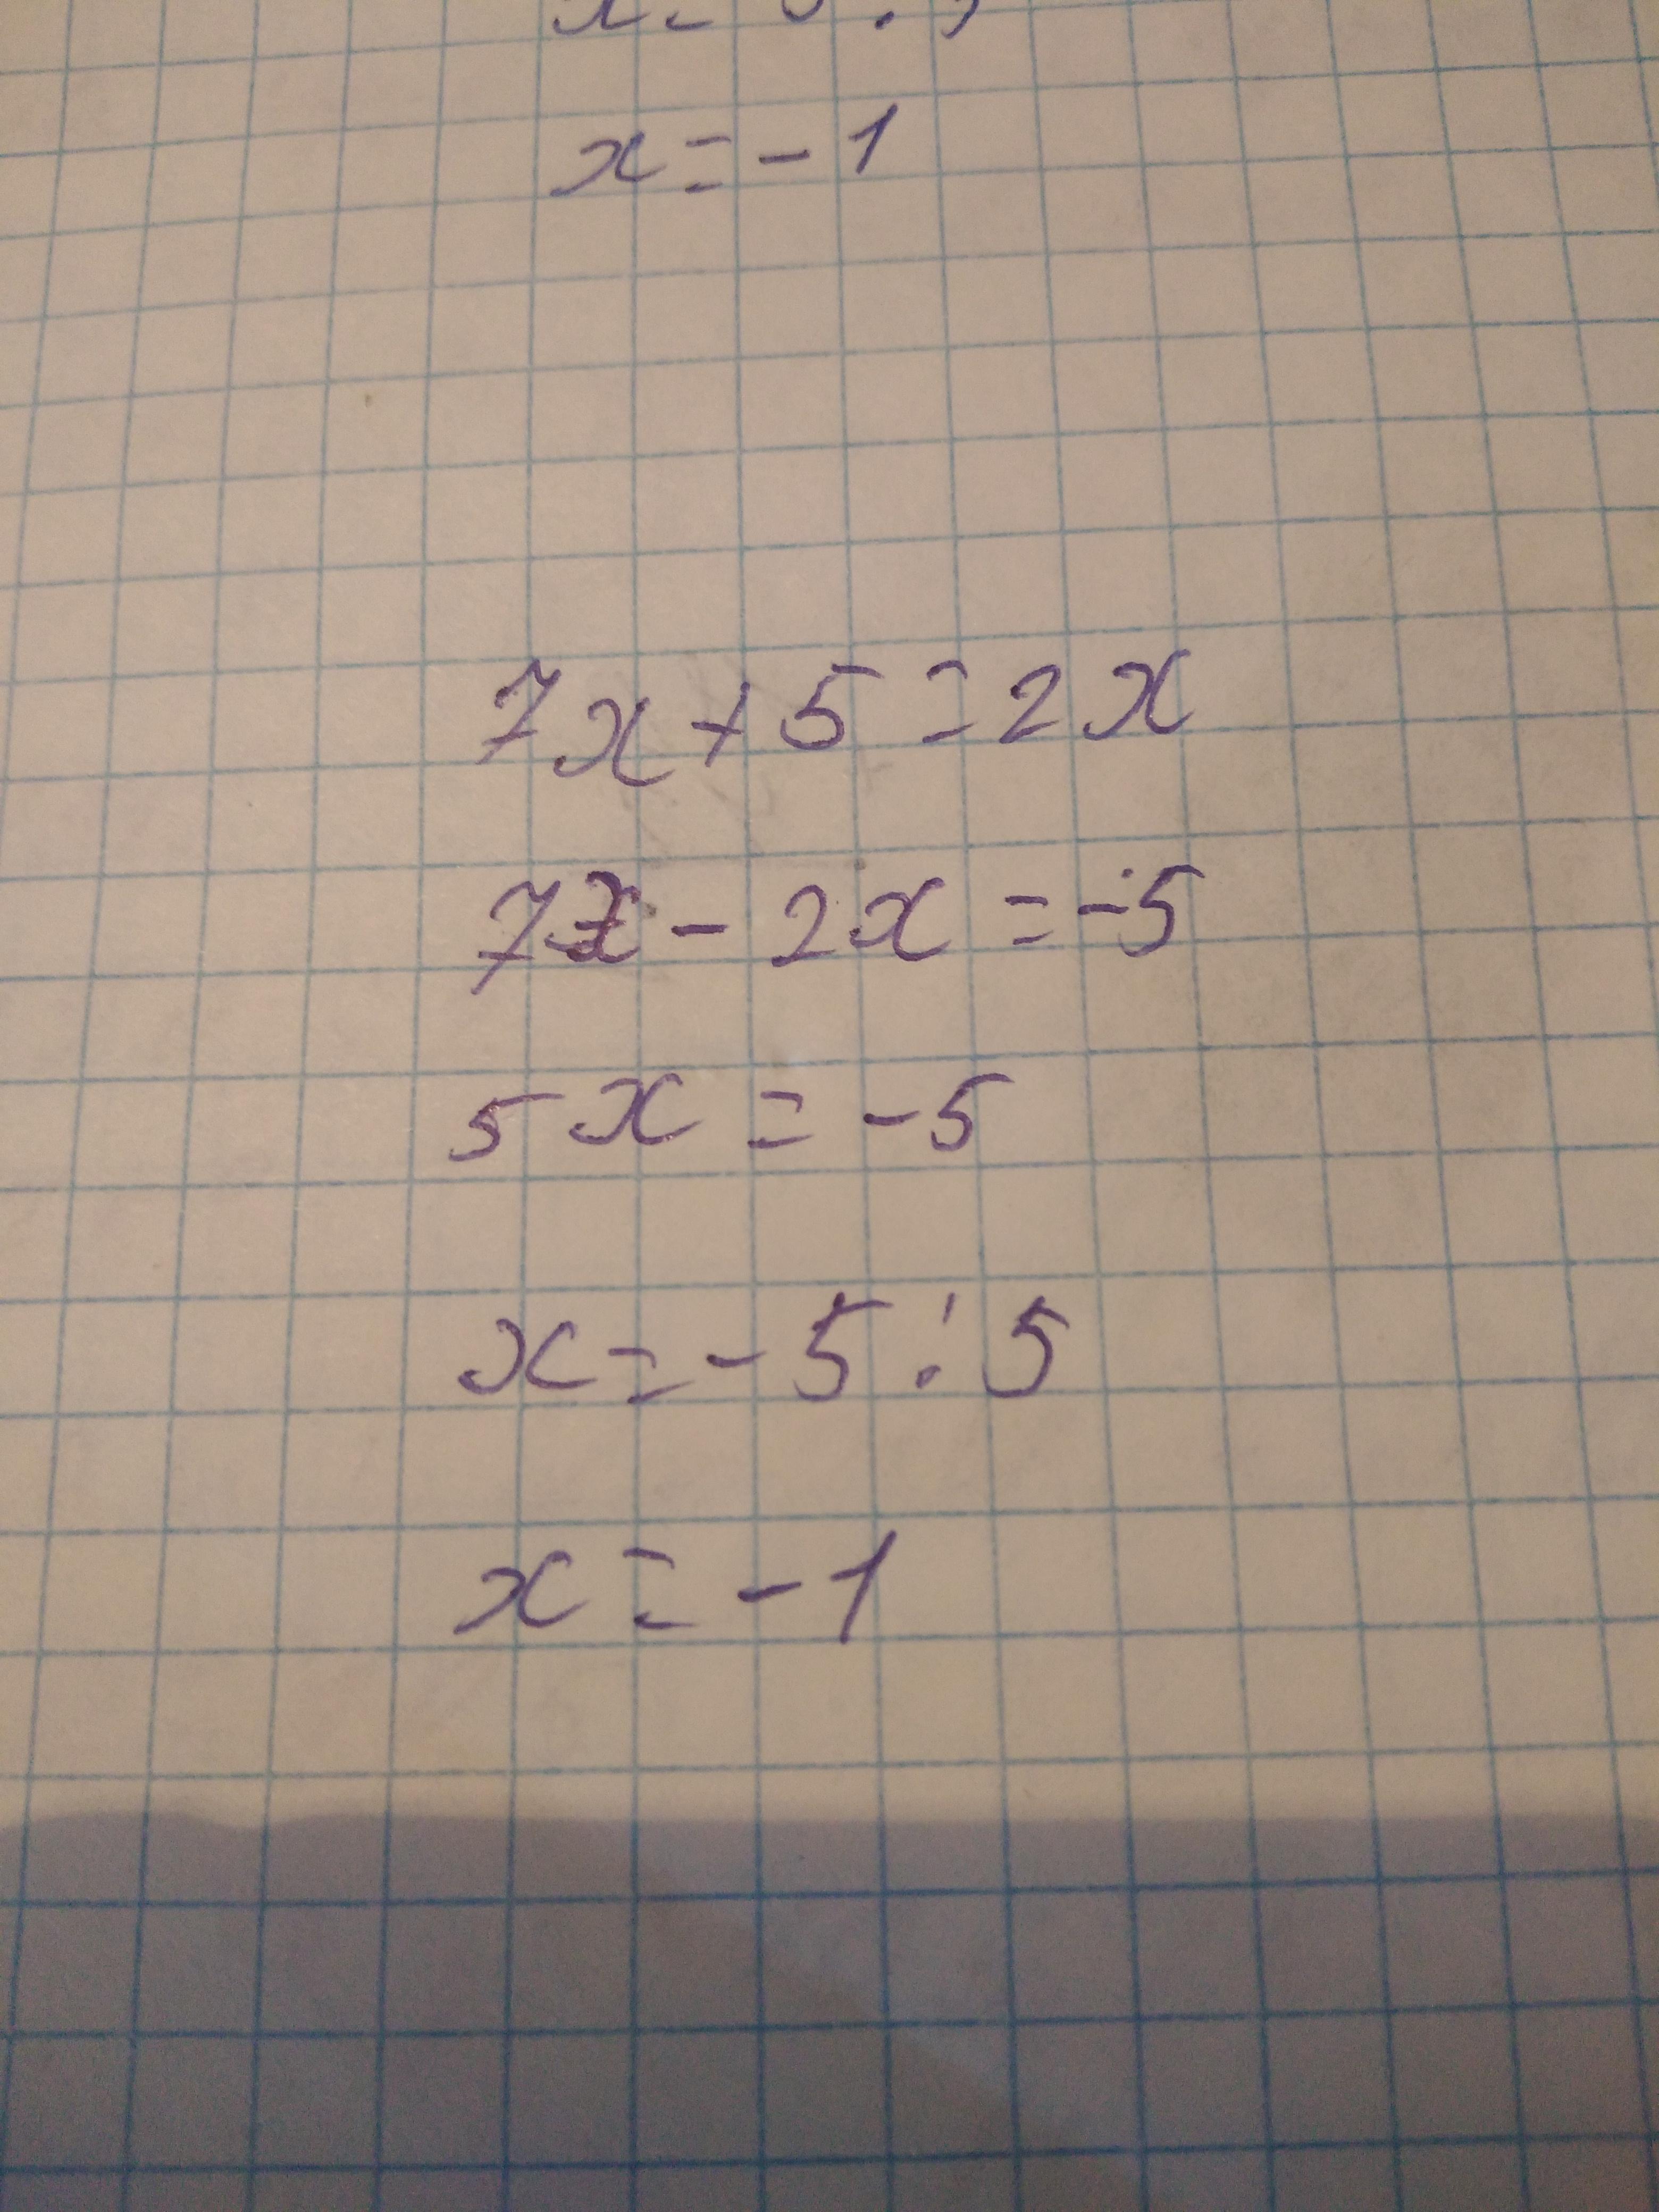 x = -1
7x + 5 = 2x
7x - 2x = -5
5x = -5
x = -5 : 5
x = -1